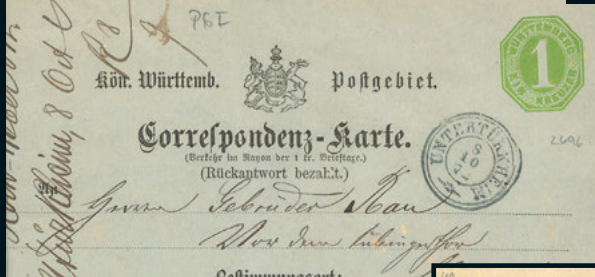 P6I
Kön. Württemb. Postgebiet.
WÜRTTEMBERG
1
EIN KREUZER
Correspondenz-Karte.
(Verkehr im Rayon der 1 kr. Brieftaxe.)
(Rückantwort bezahlt.)
UNTERTÜRKHEIM
8
2696
8 Oct
An
Herren Gebrüder Rau
Vor dem Tübinger Thor
Bestimmungsort: